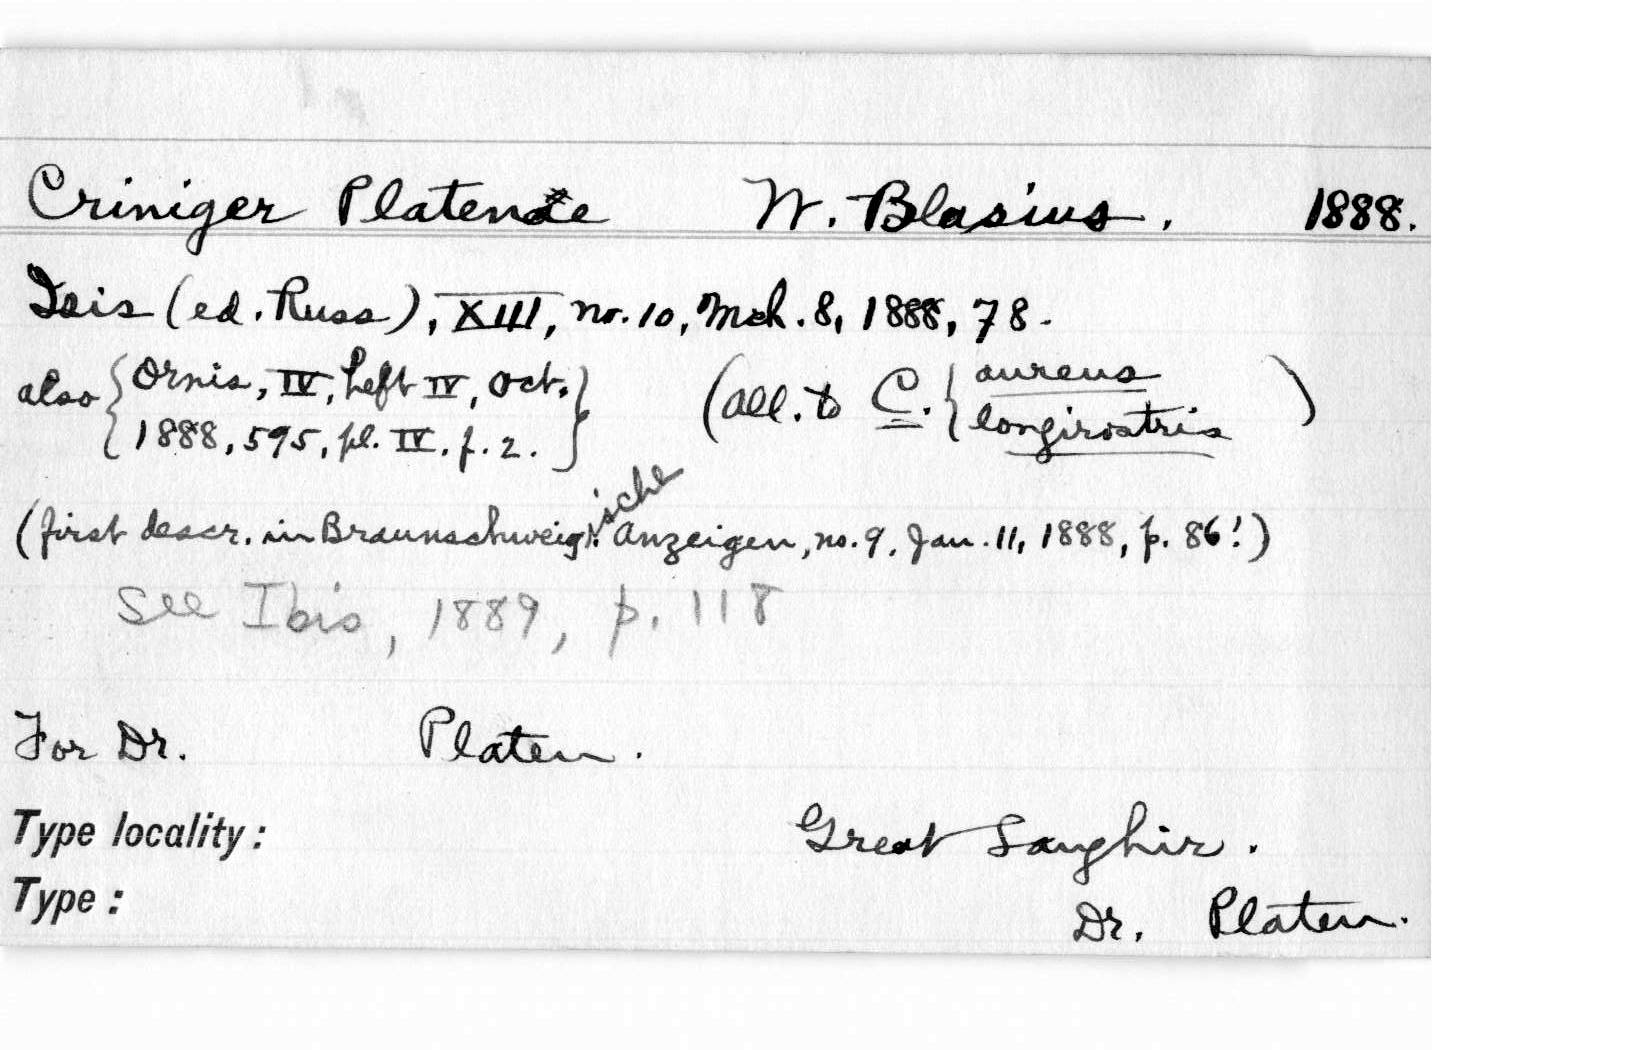 Criniger Platenae W. Blasius, 1888.
Isis (ed. Russ), XIII, no. 10, Mch. 8, 1888, 78.
also { Ornis, IV, heft IV, Oct. 1888, 595, pl. IV, f. 2. }
(all. to C. { aureus longirostris )
(first descr. in Braunschweigische Anzeigen, no. 9, Jan. 11, 1888, p. 86!)
See Ibis, 1889, p. 118
For Dr. Platen.
Type locality: Great Sanghir.
Type: Dr. Platen.